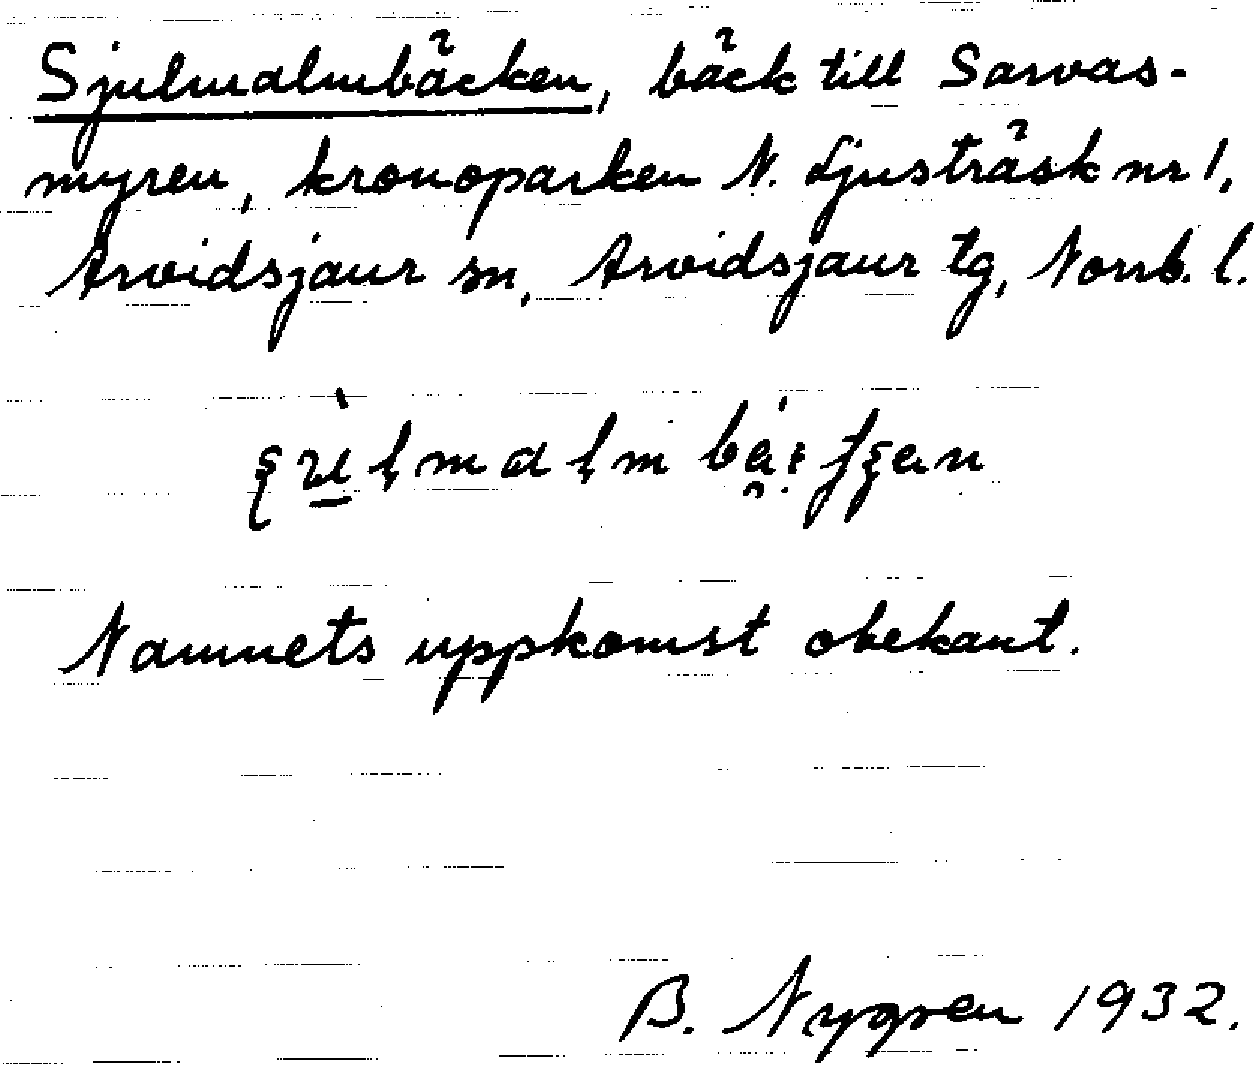 Sjulmalmbäcken, bäck till Sarvas-
myren, kronoparken N. Ljusträsk nr 1,
Arvidsjaur sn, Arvidsjaur tg, Norrb. l.
Namnets uppkomst obekant.
B. Nygren 1932.